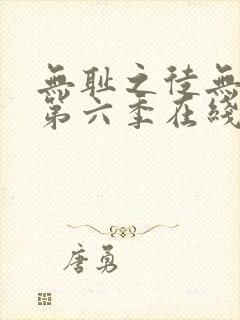 無耻之徒無
第六季在綫
唐勇